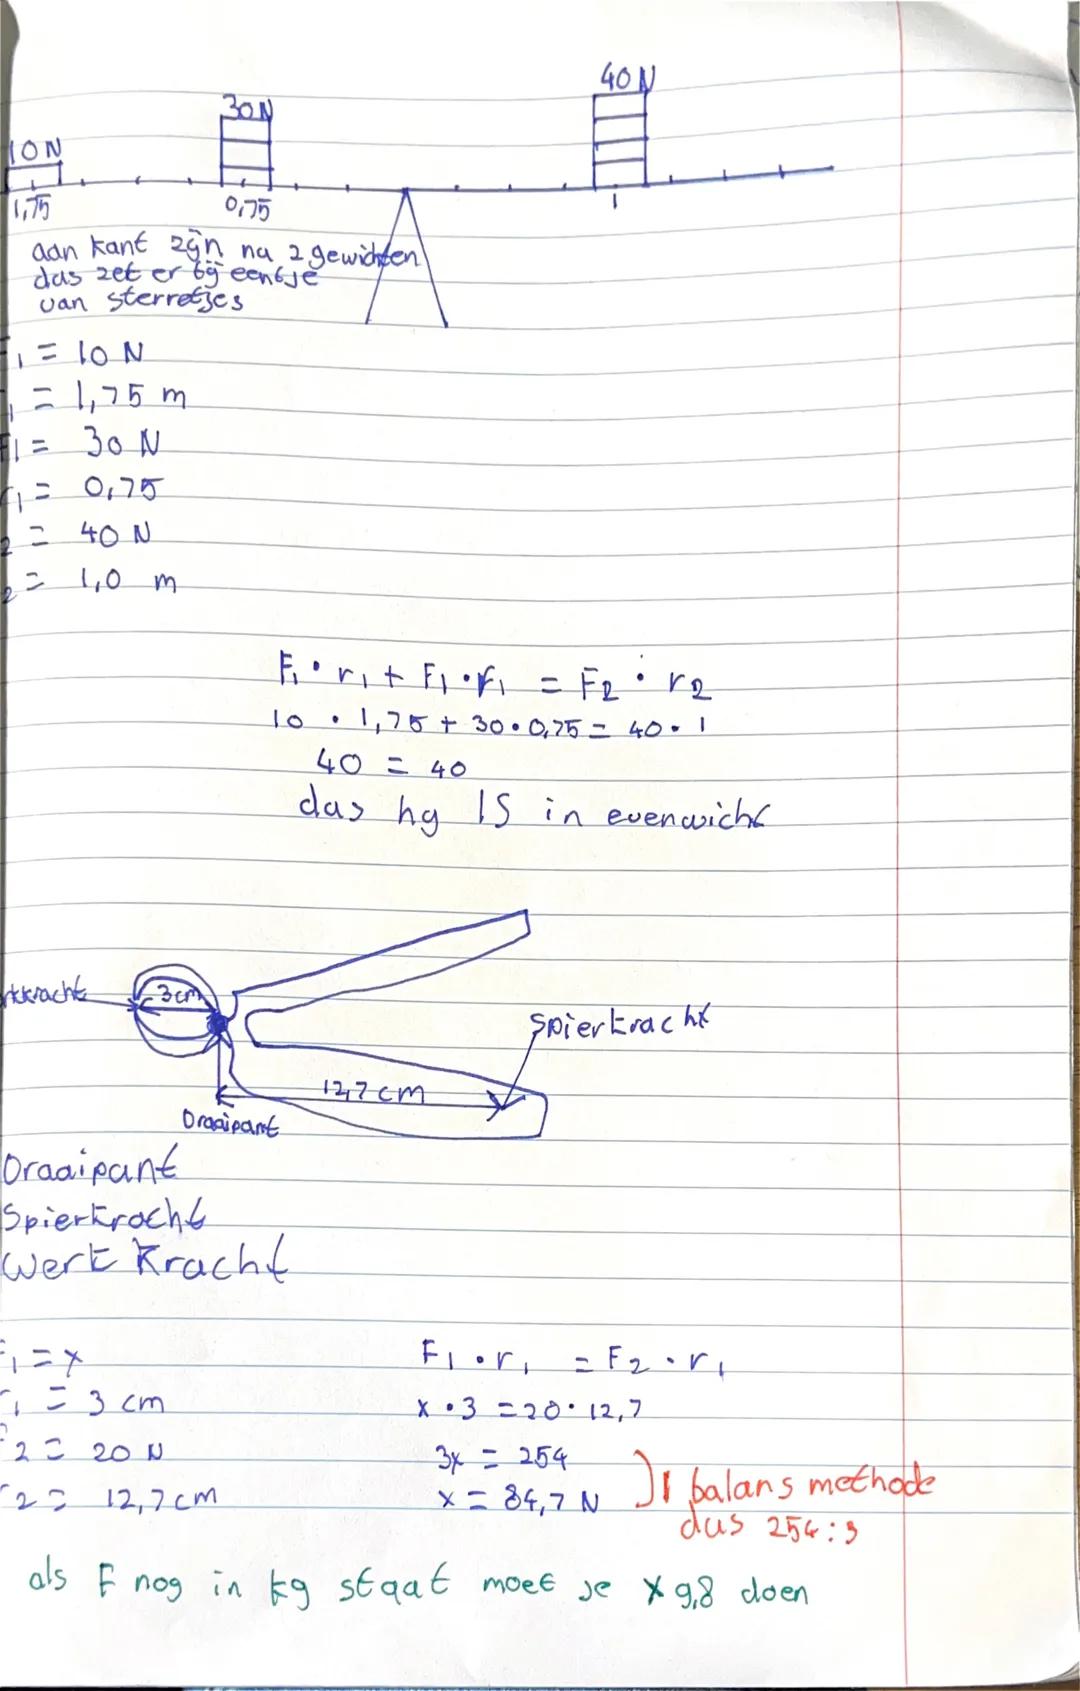 40 N
30 N
10 N
1,75
0,75
1
aan kant zijn na 2 gewichten
dus zet er bij eentje
van sterretjes
1 = 10 N
1 = 1,75 m
F1 = 30 N
r1 = 0,75
2 = 40 N
2 = 1,0 m
F1 · r1 + F1 · r1 = F2 · r2
10 · 1,75 + 30 · 0,75 = 40 · 1
40 = 40
dus hij IS in evenwicht
rkkracht
3 cm
Spierkracht
12,7 cm
Draaipunt
Draaipunt
Spierkracht
Werk Kracht
F1 = x
r1 = 3 cm
F2 = 20 N
r2 = 12,7 cm
F1 · r1 = F2 · r1
x · 3 = 20 · 12,7
3x = 254
x = 84,7 N
balans methode
dus 254 : 3
als F nog in kg staat moet je x 9,8 doen